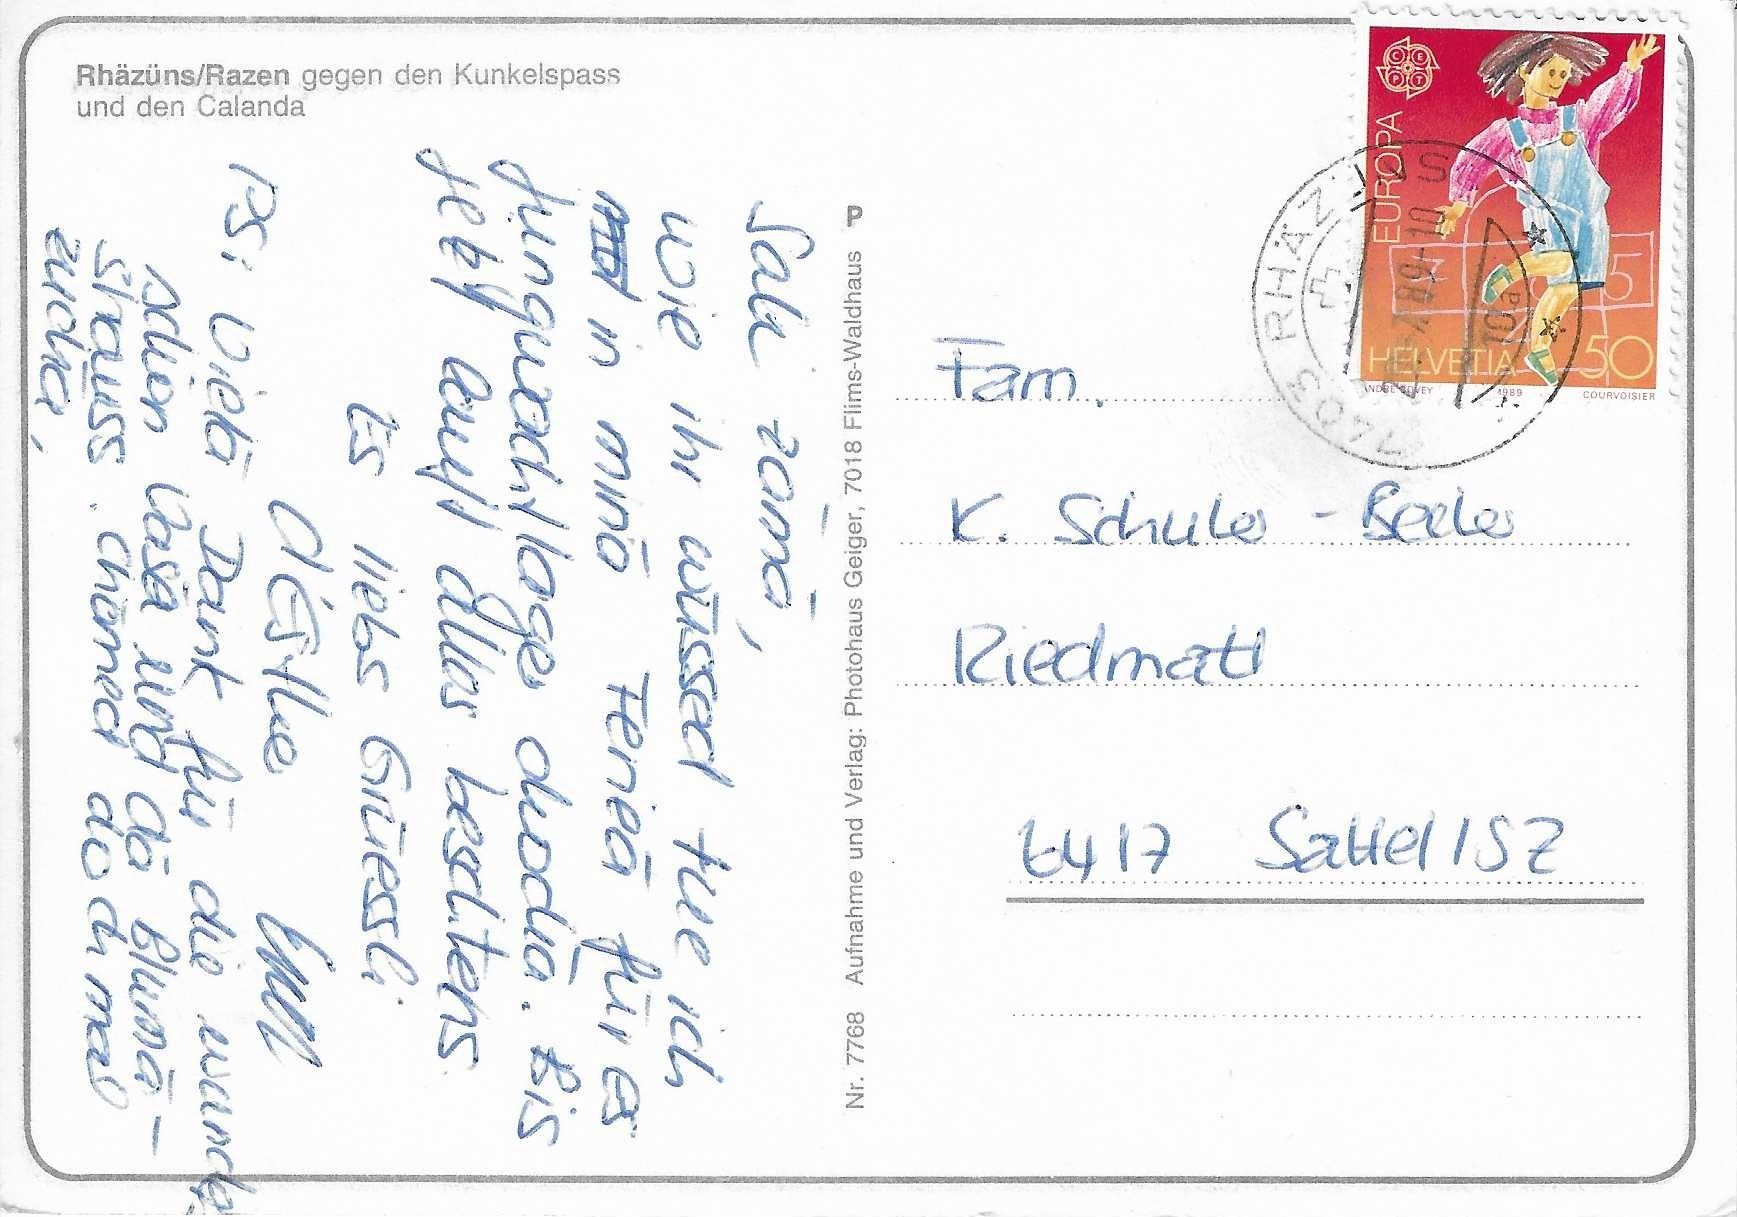 Rhäzüns/Razen gegen den Kunkelspass
und den Calanda
Sali zämä,
Wie ihr wüssed tue ich
in minä Feriea für es
Jungwachtlager chochä. Bis
jetzt lauft alles bestens
Es liebs Grüessli
PS: Vielä Dank für die
schön Vasä und dä Blumä-
struss. Chömed doch mal
zuchä,
Nr. 7768 Aufnahme und Verlag: Photohaus Geiger, 7018 Flims-Waldhaus P
EUROPA
CEPT
HELVETIA 50
1989
COURVOISIER
7403 RHÄZÜNS
Fam.
K. Schuler - Beeler
Riedmatt
6417 Sattel / SZ